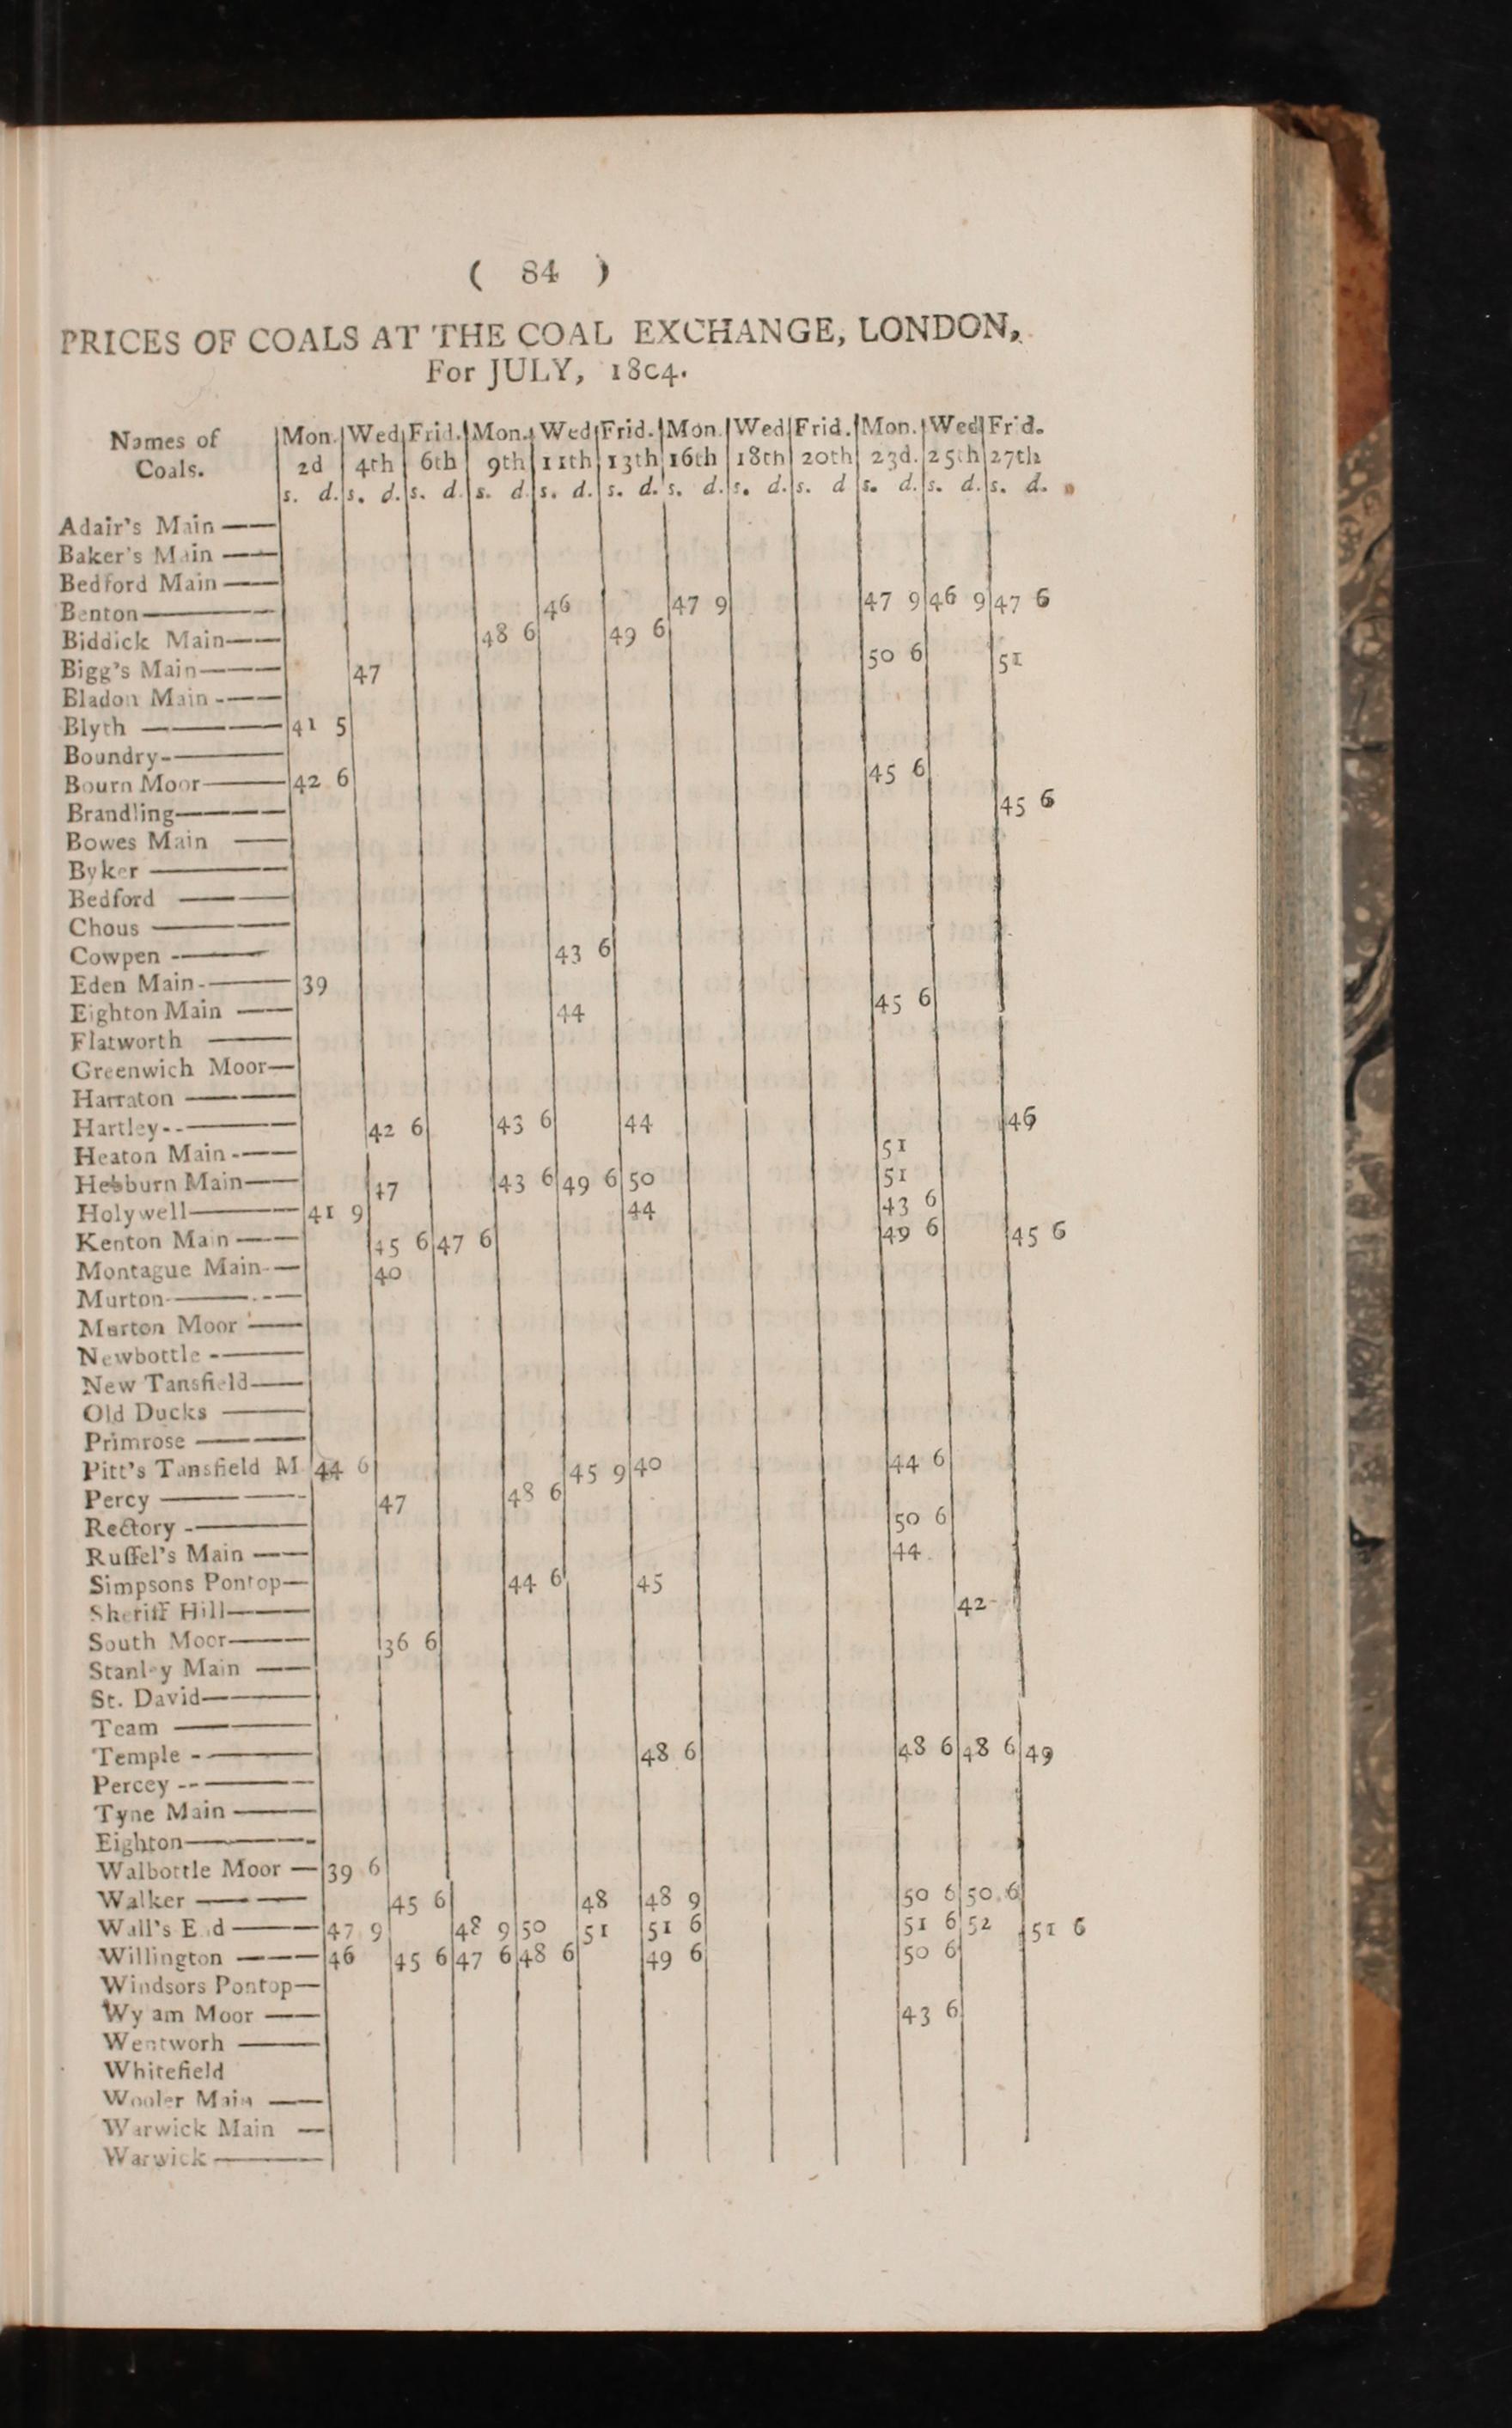 ( 84 )
PRICES OF COALS AT THE COAL EXCHANGE, LONDON,
For JULY, 18c4.
Names of Coals. | Mon. 2d | Wed 4th | Frid. 6th | Mon. 9th | Wed 11th | Frid. 13th | Mon. 16th | Wed 18th | Frid. 20th | Mon. 23d. | Wed 25th | Frid. 27th
s. d. | s. d. | s. d. | s. d. | s. d. | s. d. | s. d. | s. d. | s. d | s. d. | s. d. | s. d.
Adair's Main ——
Baker's Main ——
Bedford Main ——
Benton —— 46 | 47 9 | 47 9 | 46 9 | 47 6
Biddick Main —— 48 6 | 49 6
Bigg's Main —— 47 | 50 6 | 51
Bladon Main ——
Blyth —— 41 5
Boundry ——
Bourn Moor —— 42 6 | 45 6
Brandling —— 45 6
Bowes Main ——
Byker ——
Bedford ——
Chous ——
Cowpen —— 43 6
Eden Main —— 39
Eighton Main —— 44 | 45 6
Flatworth ——
Greenwich Moor—
Harraton ——
Hartley —— 42 6 | 43 6 | 44 | 46
Heaton Main —— 51
Hebburn Main —— 47 | 43 6 | 49 6 | 50 | 51
Holywell —— 41 9 | 44 | 43 6
Kenton Main —— 45 6 | 47 6 | 49 6 | 45 6
Montague Main — 40
Murton ——
Murton Moor ——
Newbottle ——
New Tansfield ——
Old Ducks ——
Primrose ——
Pitt's Tansfield M 44 6 | 45 9 | 40 | 44 6
Percy —— 47 | 48 6
Rectory —— 50 6
Ruffel's Main —— 44
Simpsons Pontop— 44 6 | 45
Sheriff Hill —— 42
South Moor —— 36 6
Stanley Main ——
St. David ——
Team ——
Temple —— 48 6 | 48 6 | 48 6 | 49
Percey ——
Tyne Main ——
Eighton ——
Walbottle Moor — 39 6
Walker —— 45 6 | 48 | 48 9 | 50 6 | 50 6
Wall's End —— 47 9 | 48 9 | 50 | 51 | 51 6 | 51 6 | 52 | 51 6
Willington —— 46 | 45 6 | 47 6 | 48 6 | 49 6 | 50 6
Windsors Pontop—
Wy am Moor —— 43 6
Wentworh ——
Whitefield
Wooler Main ——
Warwick Main —
Warwick ——